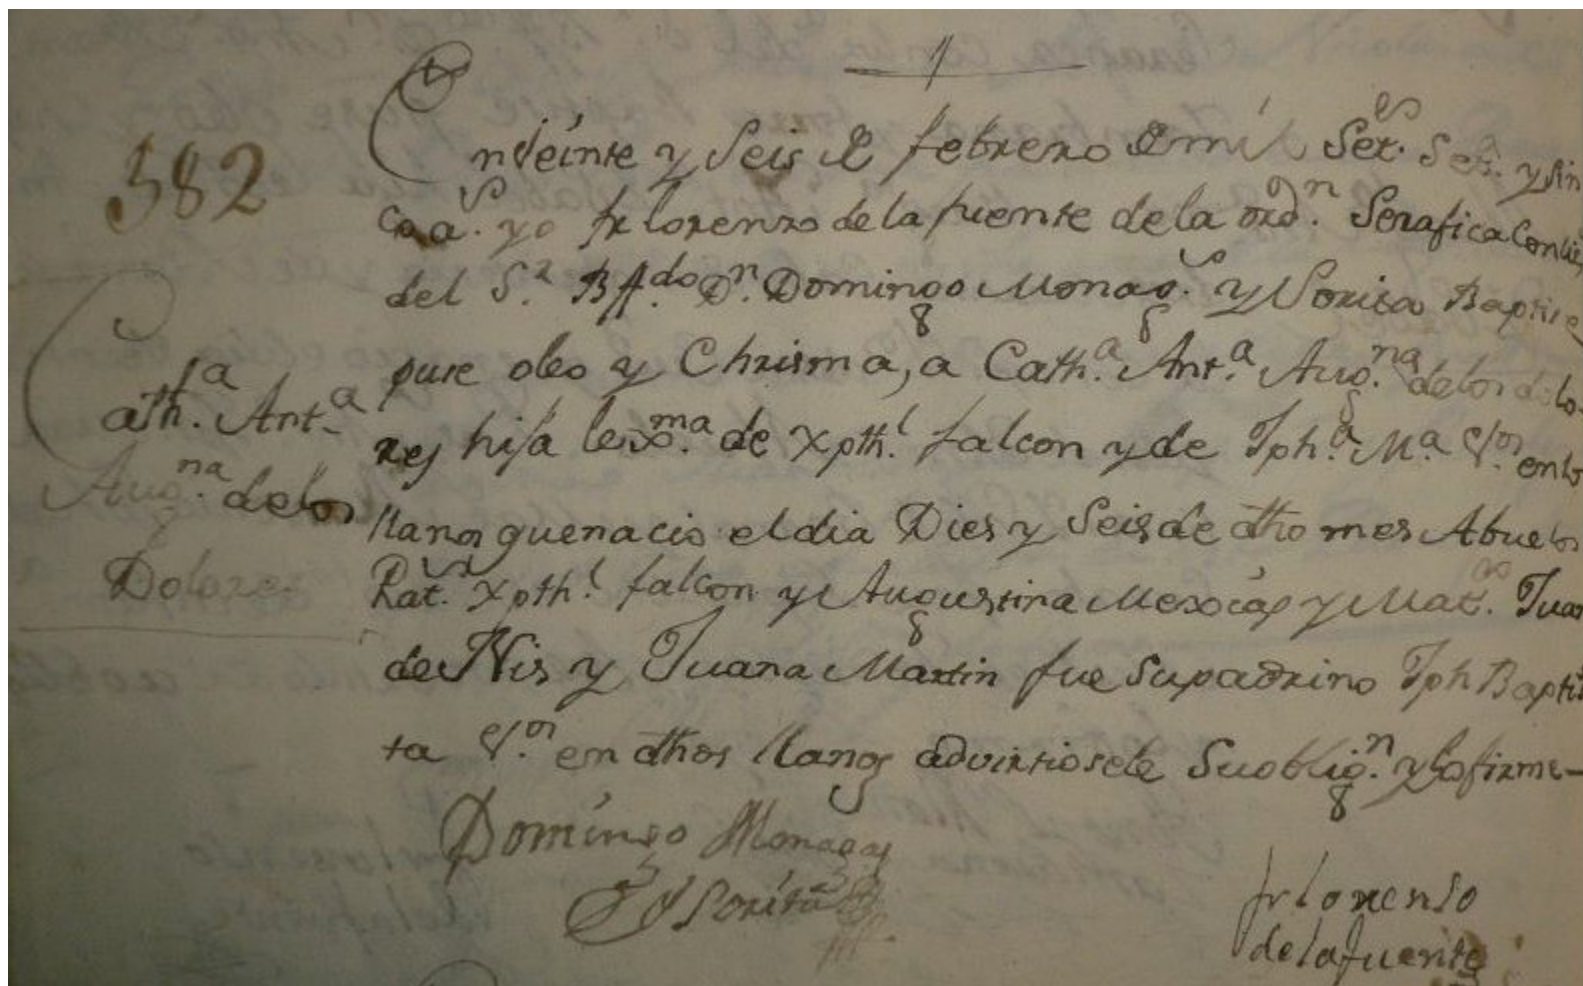 582
Cath.ª Ant.ª
Aug.na de los
Dolores
En veinte y Seis de febrero de mil Set.s Set.ª y sin
co a.s yo fr lorenzo de la fuente de la ord.n Serafica con lic
del S.r B A.do D.n Domingo Monag.s y Sorita Baptice
puse oleo y Chrisma, a Cath.ª Ant.ª Aug.na de los dolo-
res hija lexma de xpth.l falcon y de Jph.ª M.ª V.os en los
llanos que nacio el dia Dies y Seis de dho mes Abuelos
Pat.s xpth.l falcon y Augustina Mexias y Mat.s Juan
de Nis y Juana Martin fue su padrino Jph Baptis
ta V.o en dhos llanos advirtiosele su oblig.n y lo firme-
Domingo Monagas
y Sorita
fr lorenso
de la fuente